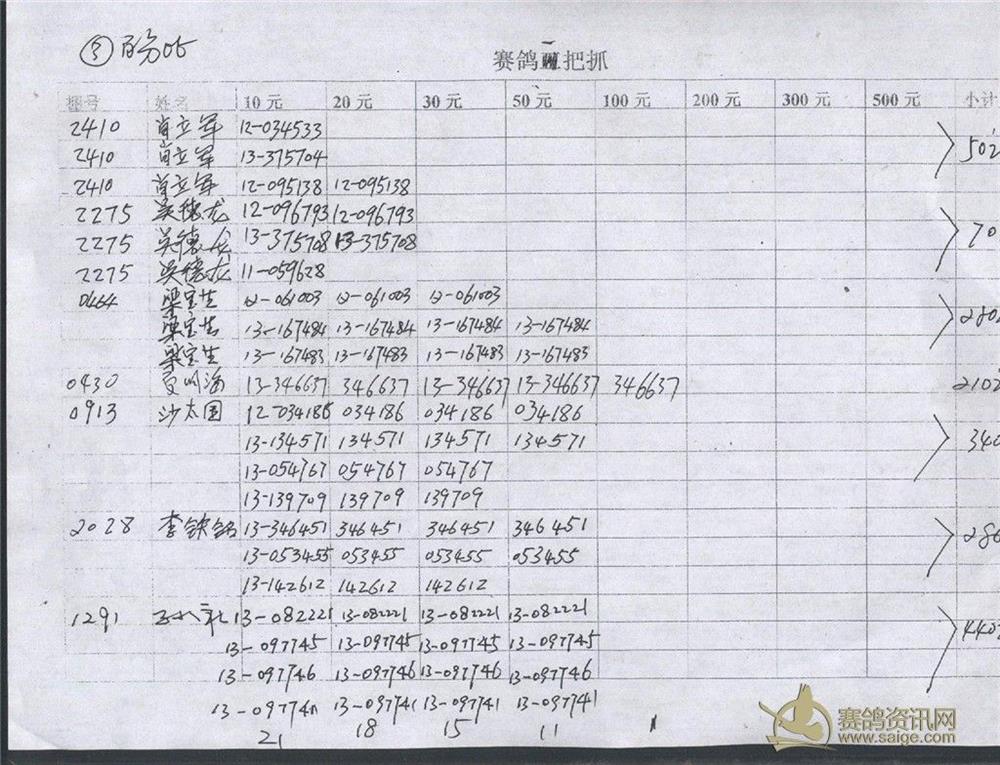 ③
赛鸽 把抓
棚号 姓名 10元 20元 30元 50元 100元 200元 300元 500元 小计
2410 肖立军 12-034533
2410 肖立军 13-375704 50
2410 肖立军 12-095138 12-095138
2275 吴德龙 12-096793 12-096793
2275 吴德龙 13-375708 13-375708 70
2275 吴德龙 11-059628
0464 梁宝生 12-061003 12-061003 12-061003
梁宝生 13-167484 13-167484 13-167484 13-167484 280
梁宝生 13-167483 13-167483 13-167483 13-167483
0430 13-346637 346637 13-346637 13-346637 346637 210
0913 沙太国 12-034186 034186 034186 034186
13-134571 134571 134571 134571 340
13-054767 054767 054767
13-139709 139709 139709
2028 李铁铭 13-346451 346451 346451 346451
13-053455 053455 053455 053455 280
13-142612 142612 142612
1291 13-082221 13-082221 13-082221 13-082221
13-097745 13-097745 13-097745 13-097745 440
13-097746 13-097746 13-097746 13-097746
13-097741 13-097741 13-097741 13-097741
21 18 15 11 1
赛鸽资讯网
www.saige.com